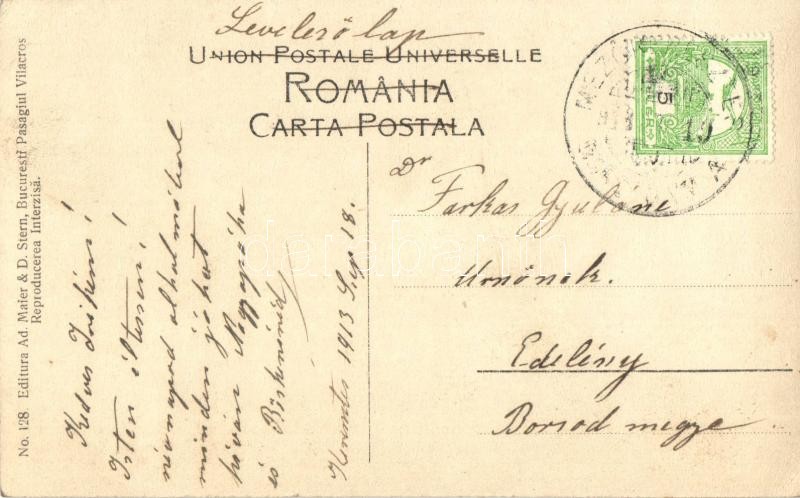 Levelező lap
UNION POSTALE UNIVERSELLE
ROMÂNIA
CARTA POSTALA
No. 128 Editura Ad. Maier & D. Stern, Bucuresti Pasagiul Vilacros
Reproducerea Interzisă.
Kedves Irikém!
Isten éltessen!
névnapod alkalmából
minden jókat
kíván Nagypapáka
és Böskenénéd
1913 Sep 18.
Dr Farkas Gyuláné
Urnőnek.
Edelény
Borsod megye